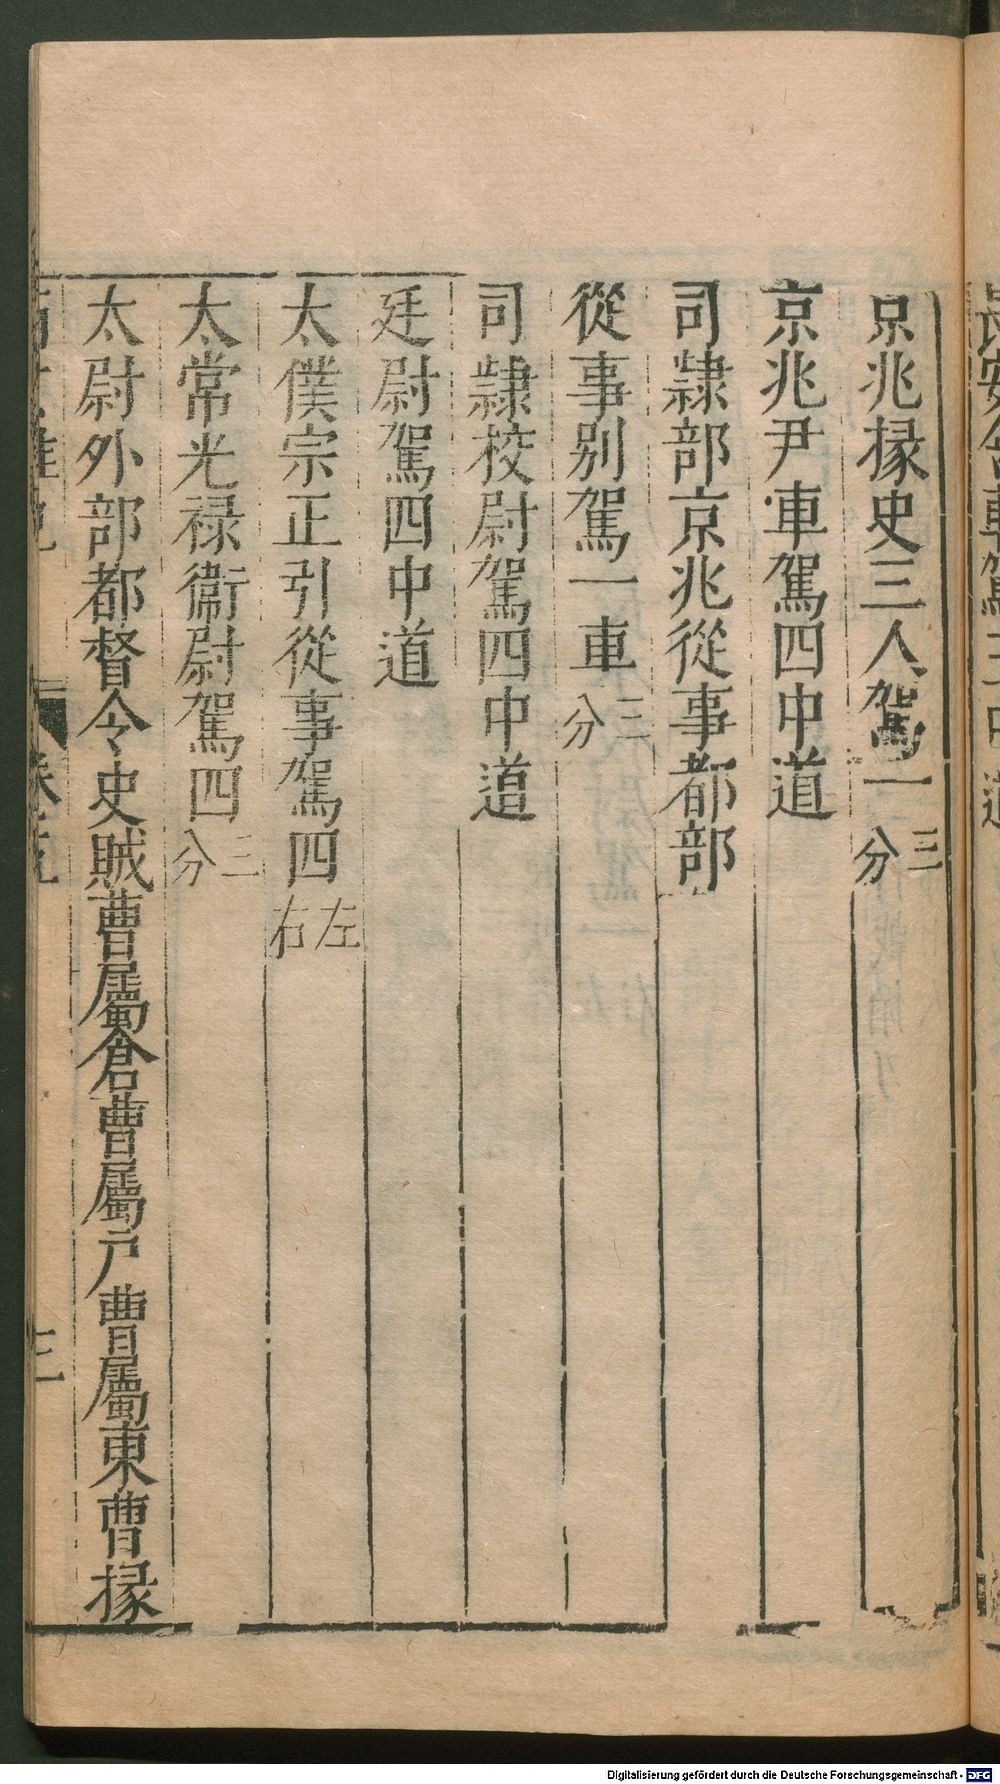 京兆掾史三人駕一三分
京兆尹車駕四中道
司隷部京兆從事都部
從事别駕一車三分
司隷校尉駕四中道
廷尉駕四中道
太僕宗正引從事駕四左右
太常光禄衞尉駕四三分
太尉外部都督令史賊曹屬倉曹屬户曹屬東曹掾
三
長安令車駕三中道
Digitalisierung gefördert durch die Deutsche Forschungsgemeinschaft - DFG